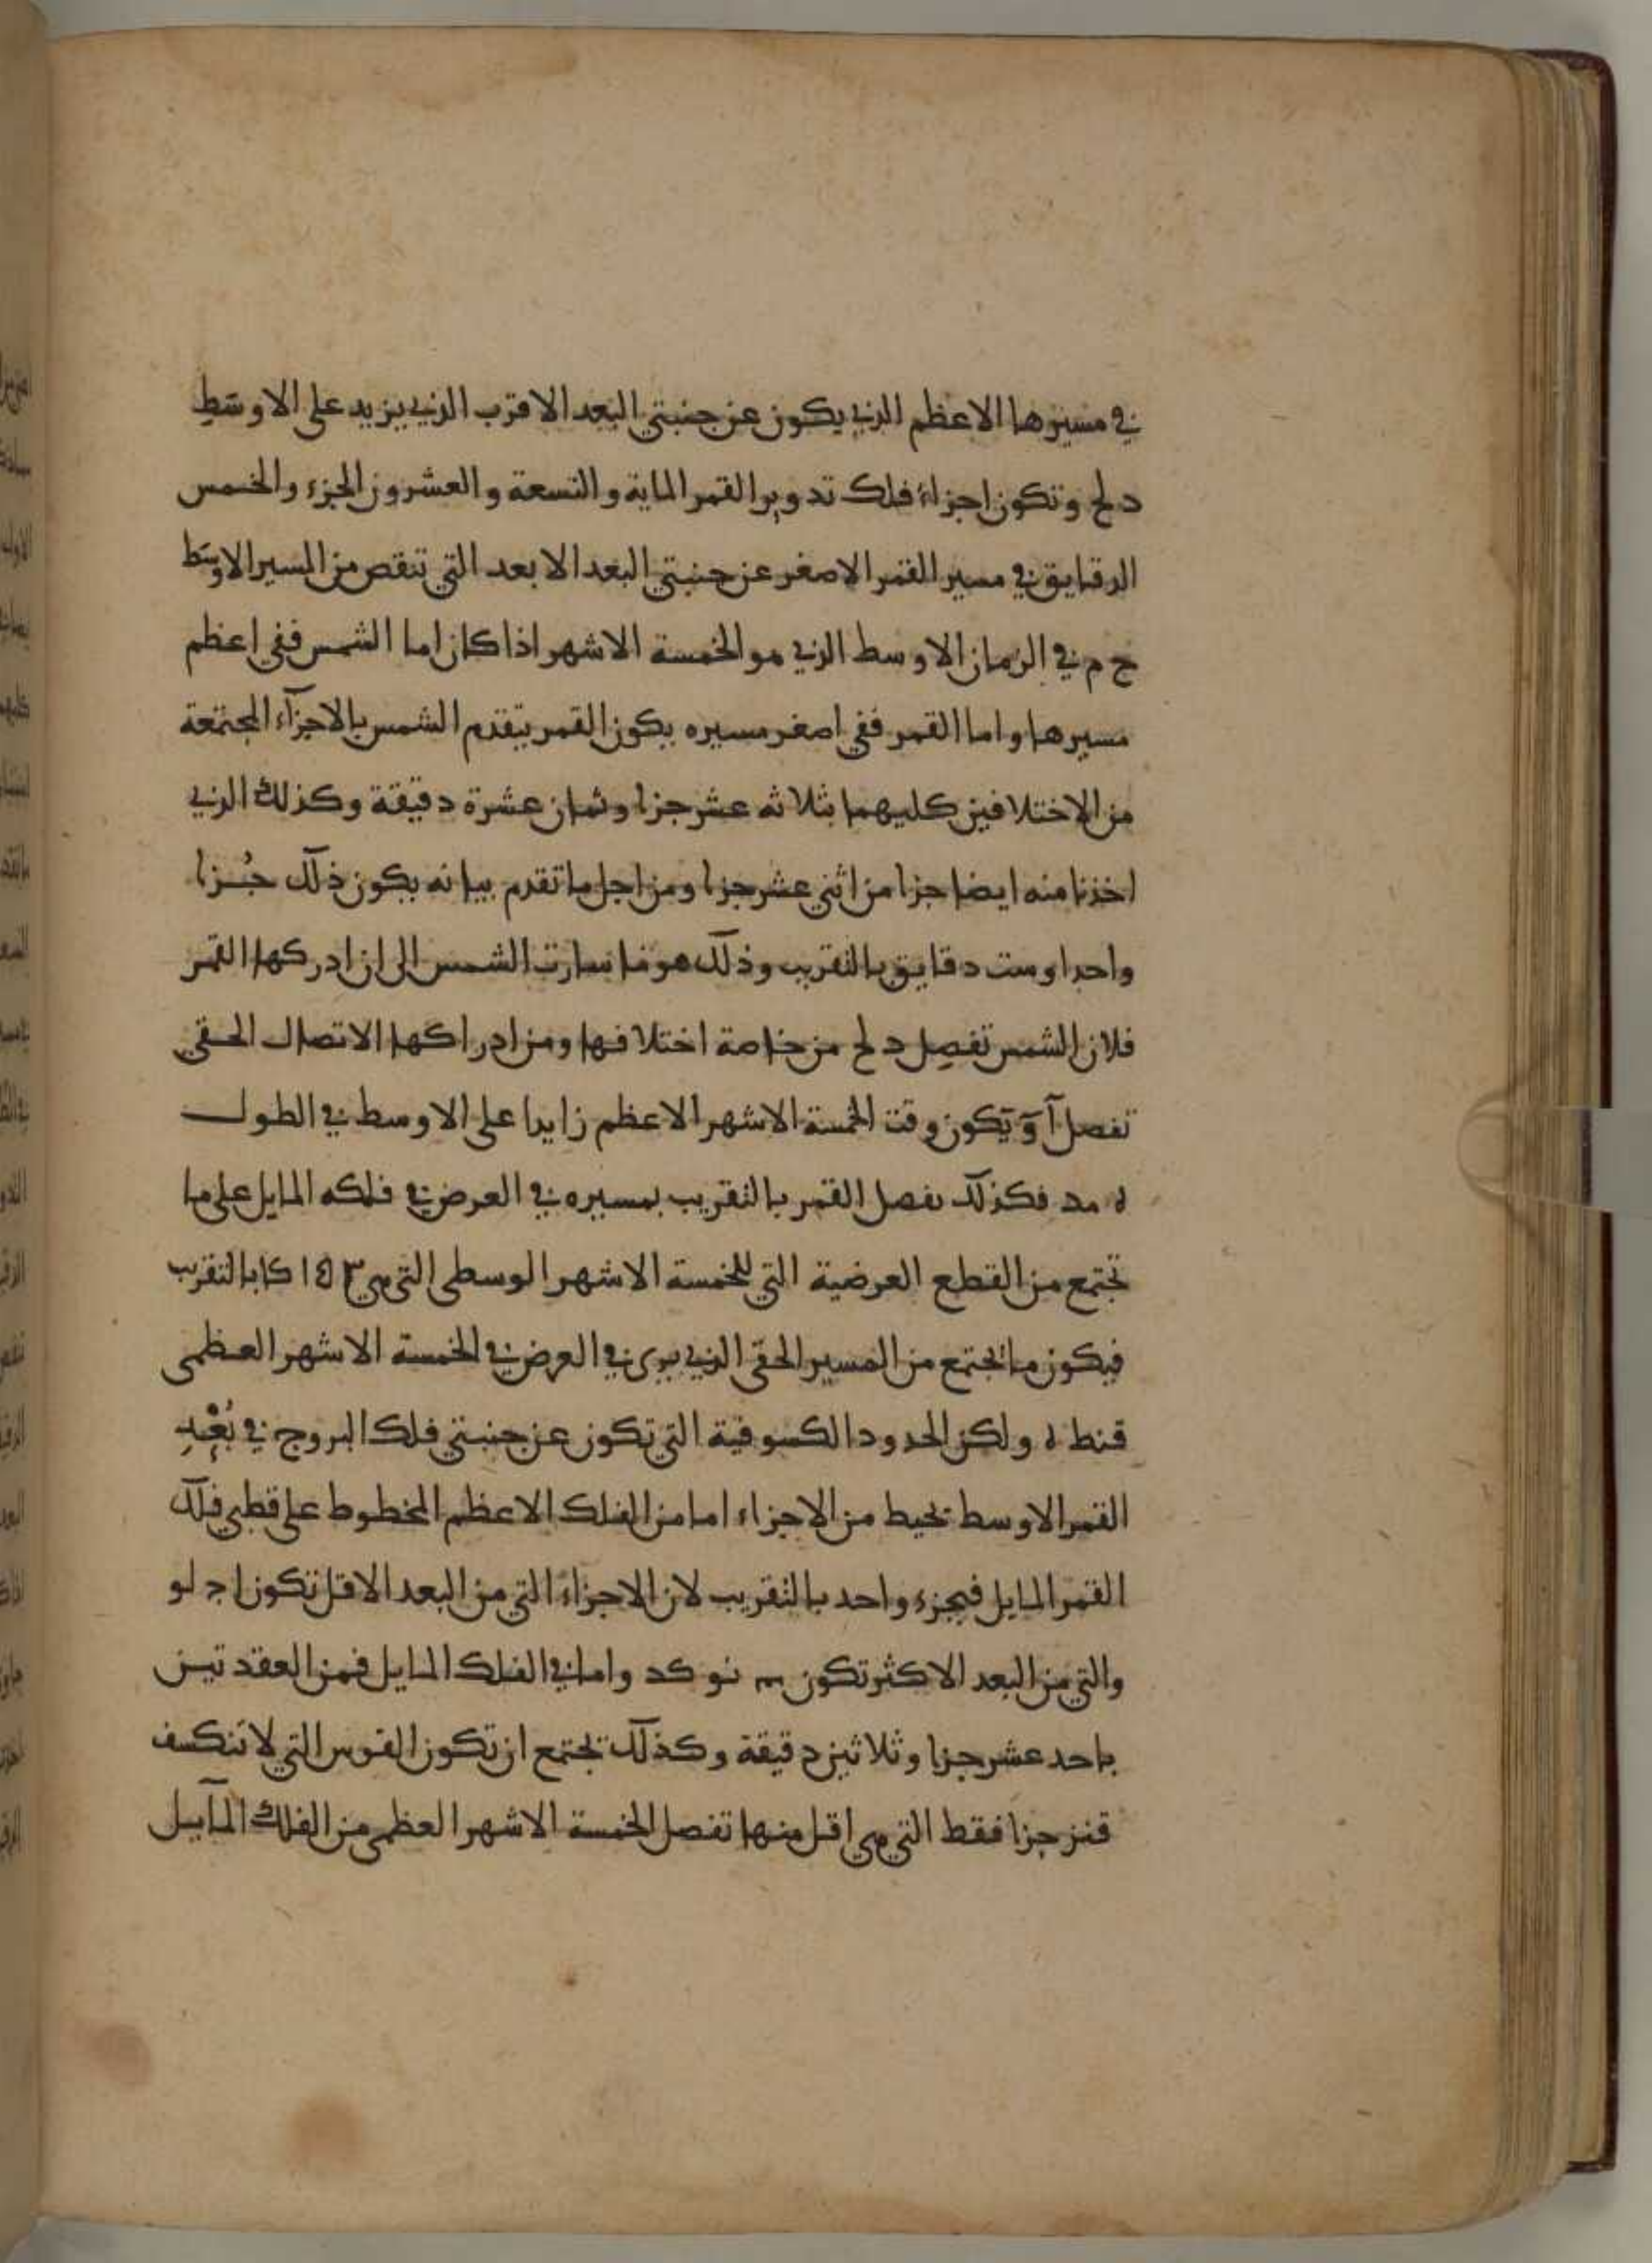 في مسيرها الاعظم الذي يكون عن جنبتي البعد الاقرب الذي يزيد على الاوسط
د لح وتكون اجزاء فلك تدوير القمر الماية والتسعة والعشرون الجزء والخمس
الدقايق في مسير القمر الاصغر عن جنبتي البعد الابعد التي تنقص من المسير الاوسط
ح م في الزمان الاوسط الذي هو الخمسة الاشهر اذا كان اما الشمس ففي اعظم
مسيرها واما القمر ففي اصغر مسيره يكون القمر يتقدم الشمس بالاجزآء المجتمعة
من الاختلافين كليهما بثلاثه عشر جزا وثمان عشرة دقيقة وكذلك الذي
اخذنا منه ايضا جزا من اثني عشر جزا ومن اجل ما تقدم بيانه يكون ذلك جُزا
واحدا وست دقايق بالتقريب وذلك هو ما سارت الشمس الى ان ادركها القمر
فلان الشمس تفصِل د لح من خاصة اختلافها ومن ادراكها الاتصال الحقي
تفصل آ وَ يَكون وقت الخمسة الاشهر الاعظم زايدا على الاوسط في الطول
ه مد فكذلك يفصل القمر بالتقريب بمسيره في العرض في فلكه المايل على ما
تجتمع من القطع العرضية التي للخمسة الاشهر الوسطى التي هي كا بالتقريب
فيكون ما تجتمع من المسير الحقي الذي يرى في العرض في الخمسة الاشهر العظمى
قنط ه ولكن الحدود الكسوفية التي تكون عن جنبتي فلك البروج في بُعْدِ
القمر الاوسط تحيط من الاجزاء اما من الفلك الاعظم المخطوط على قطبي فلك
القمر المايل فبجزء واحد بالتقريب لان الاجزاءَ التي من البعد الاقل تكون ا ج لو
والتي من البعد الاكثر تكون نو كد واما في الفلك المايل فمن العقدتين
باحد عشر جزا وثلاثين دقيقة وكذلك تجتمع ان تكون القوس التي لا تنكسف
قنز جزا فقط التي هي اقل منها تفصل الخمسة الاشهر العظمى من الفلك المآيل